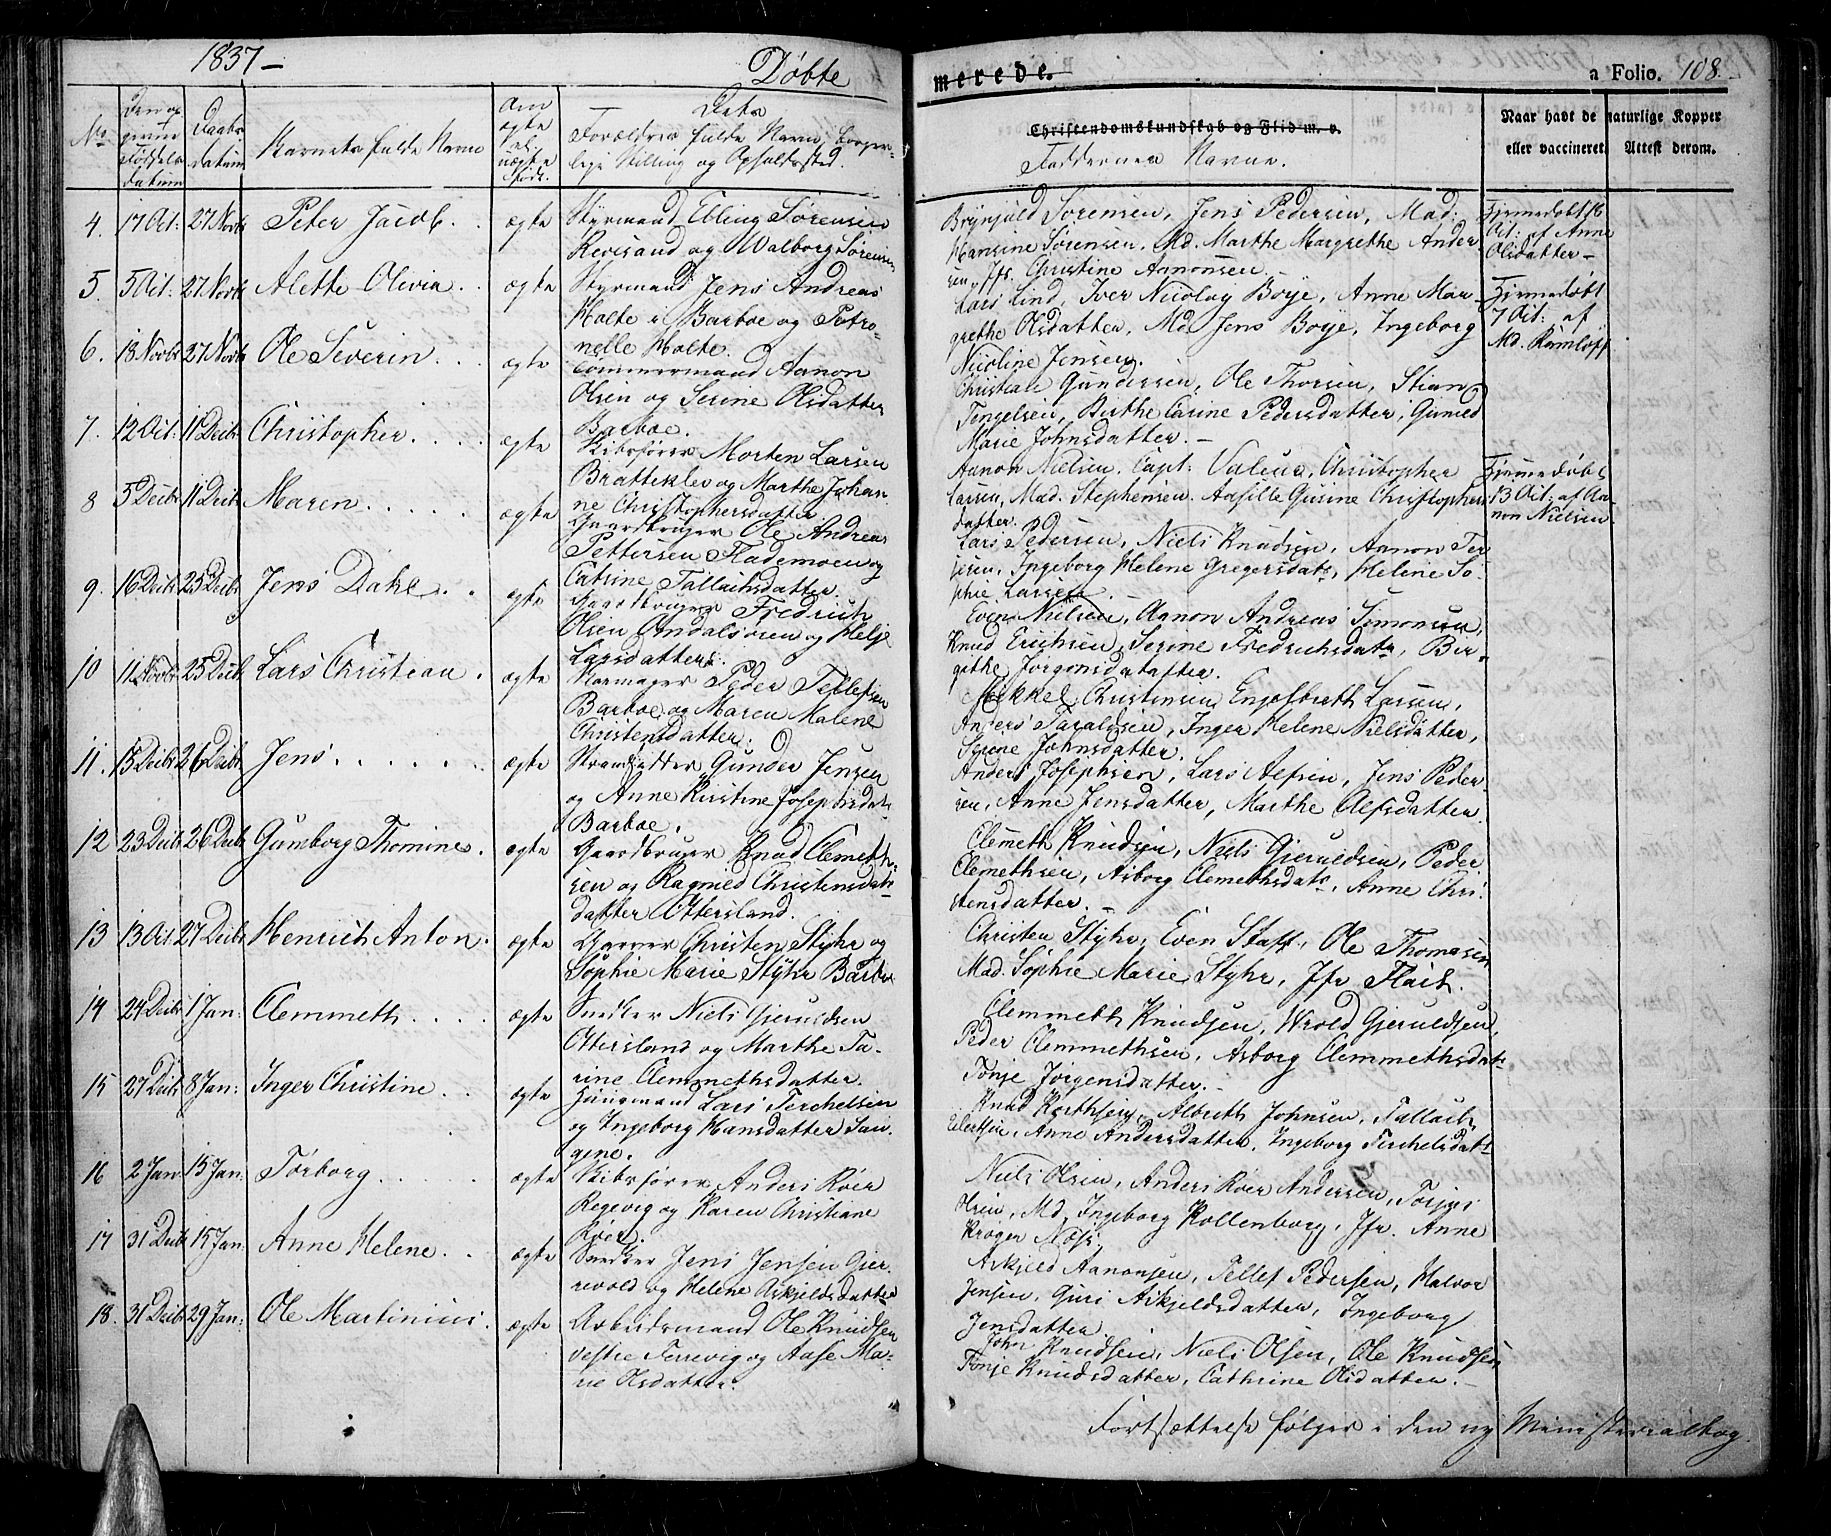 1837 -
Døbte
merede.
a Folio. 108.
No
Den op
givne
Fødsels
datum
Daabs
datum
Barnets fulde Navn
Om
ægte
el.
uægte
født.
Dets
Forældres fulde Navn, borger-
lige Stilling og Opholdssted.
Christendomskundskab og Flid m. v.
Faddernes Navne.
Naar havt de naturlige Kopper
eller vaccineret. Attest derom.
4. 17 Oct: 27 Novbr Peter Jacob. ægte
Styrmand Ebling Sørensen
Revesand og Walborg Sørensen
Brynjuld Sørensen, Jens Pedersen, Mad:
Hansine Sørensen, Md. Marthe Margrethe Ander
sen, Jfr. Christine Aanonsen.
Hjemmedøbt
Oct: af Anne
Olsdatter -
5. 5 Oct: 27 Novbr Alette Olivia. ægte
Styrmand Jens Andreas
Holte i Barboe og Petro-
nelle Holte.
Lars Lind, Iver Nicolay Boye, Anne Mar-
grethe Olsdatter, Md. Jens Boye, Ingeborg
Nicoline Jensen.
Hjemmedøbt
7 Oct: af
Md. Ramløff
6. 18 Novbr 27 Novbr Ole Severin. ægte
Tømmermand Aanon
Olsen og Serine Olsdatter
Barboe.
Christian Gundersen, Ole Thorsen, Stian
Tengelsen, Birthe Carine Pedersdatter, Gunild
Marie Johnsdatter. -
7. 12 Oct: 11 Decbr Christopher. ægte
Skibsfører Morten Larsen
Bratteklev og Marthe Johan
ne Christophersdatter
Aanon Nielsen, Capt: Valeur, Christopher
Larsen, Mad. Stephensen, Aasille Gurine Christophers
datter.
Hjemmedøbt
13 Oct: af Aa-
non Nielsen
8 5 Decbr 11 Decbr Maren ægte
Gaardbruger Ole Andreas
Pettersen Flademoen og
Catrine Tallachsdatter.
Lars Pedersen, Niels Knudsen, Aanon Ter
jesen, Ingeborg Helene Gregersdatr, Helene So-
phie Larsen. -
9. 16 Decbr 25 Decbr Jens Dahl. ægte
Gaardbruger Fredrich
Olsen Ondalsøren og Helje
Larsdatter.
Even Nielsen, Aanon Andreas Simonsen,
Knud Erichsen, Serine Fredrichsdatr, Bir-
githe Jørgensdatter.
10 11 Novbr 25 Decbr Lars Christian. ægte
Skomager Peder Tellefsen
Barboe og Maren Malene
Christensdatter.
Mekkel Christensen, Engelbreth Larsen,
Anders Taraldsen, Inger Helene Nielsdatter,
Serene Johnsdatter.
11. 13 Decbr 26 Decbr Jens ægte
Strandsidder Gunder Jensen
og Anne Kirstine Josephsdatr
Barboe.
Anders Josephsen, Lars Alfsen, Jens Peder
sen, Anne Jensdatter, Marthe Alfsdatter.
12 23 Decbr 26 Decbr Gunborg Thomine. ægte
Gaardbruger Knud Clemeth-
sen og Ragnild Christensdats
datter Ottersland.
Clemeth Knudsen, Niels Gjeruldsen, Peder
Clemethsen, Asborg Clemethsdatr, Anne Chri-
stensdatter. -
13 13 Oct 27 Decbr Henrich Anton. ægte
Garver Christen Styhr og
Sophie Marie Styhr Barbo
Christen Styhr, Even Staff, Ole Thomasen
Mad. Sophie Marie Styhr, Jfr Flach.
14 24 Decbr 1 Jan: Clemmeth ægte
Snedker Niels Gjeruldsen
Ottersland og Marthe Ta-
rine Clemmethsdatter.
Clemmeth Knudsen, Wrold Gjeruldsen,
Peder Clemmethsen, Asborg Clemmethsdatr
Tonje Jørgensdatter. -
15 27 Decbr 8 Jan: Inger Christine. ægte
Huusmand Lars Terchelsen
og Ingeborg Hansdatter San-
gene.
Knud Kortsen, Albreth Johnsen, Tallach
Eilertsen, Anne Andersdatter, Ingeborg Terchelsdatr
16 2 Jan 15 Jan: Torborg ægte
Skibsfører Anders Röer
Regevig og Karen Christiane
Röer.
Niels Olsen, Anders Röer Andersen, Torjus
Olsen, Md. Ingeborg Kollenborg, Jfr. Anne
Krøger Næss,
17 31 Decbr 15 Jan Anne Helene. ægte
Snedker Jens Jensen Gjer-
revold og Helene Askjeldsdatter
Askjeld Aanonsen, Tellef Pedersen, Halvor
Jensen, Guri Askjeldsdatter, Ingeborg
Jensdatter.
18. 31 Decbr 29 Jan: Ole Martinius. ægte
Arbeidsmand Ole Knudsen
vestre Terrevig og Aase Ma-
rie Olsdatter.
John Knudsen, Niels Olsen, Ole Knudsen
Tonje Knudsdatter, Cathrine Olsdatter. -
Fortsættelse følger i den ny Ministerialbog.